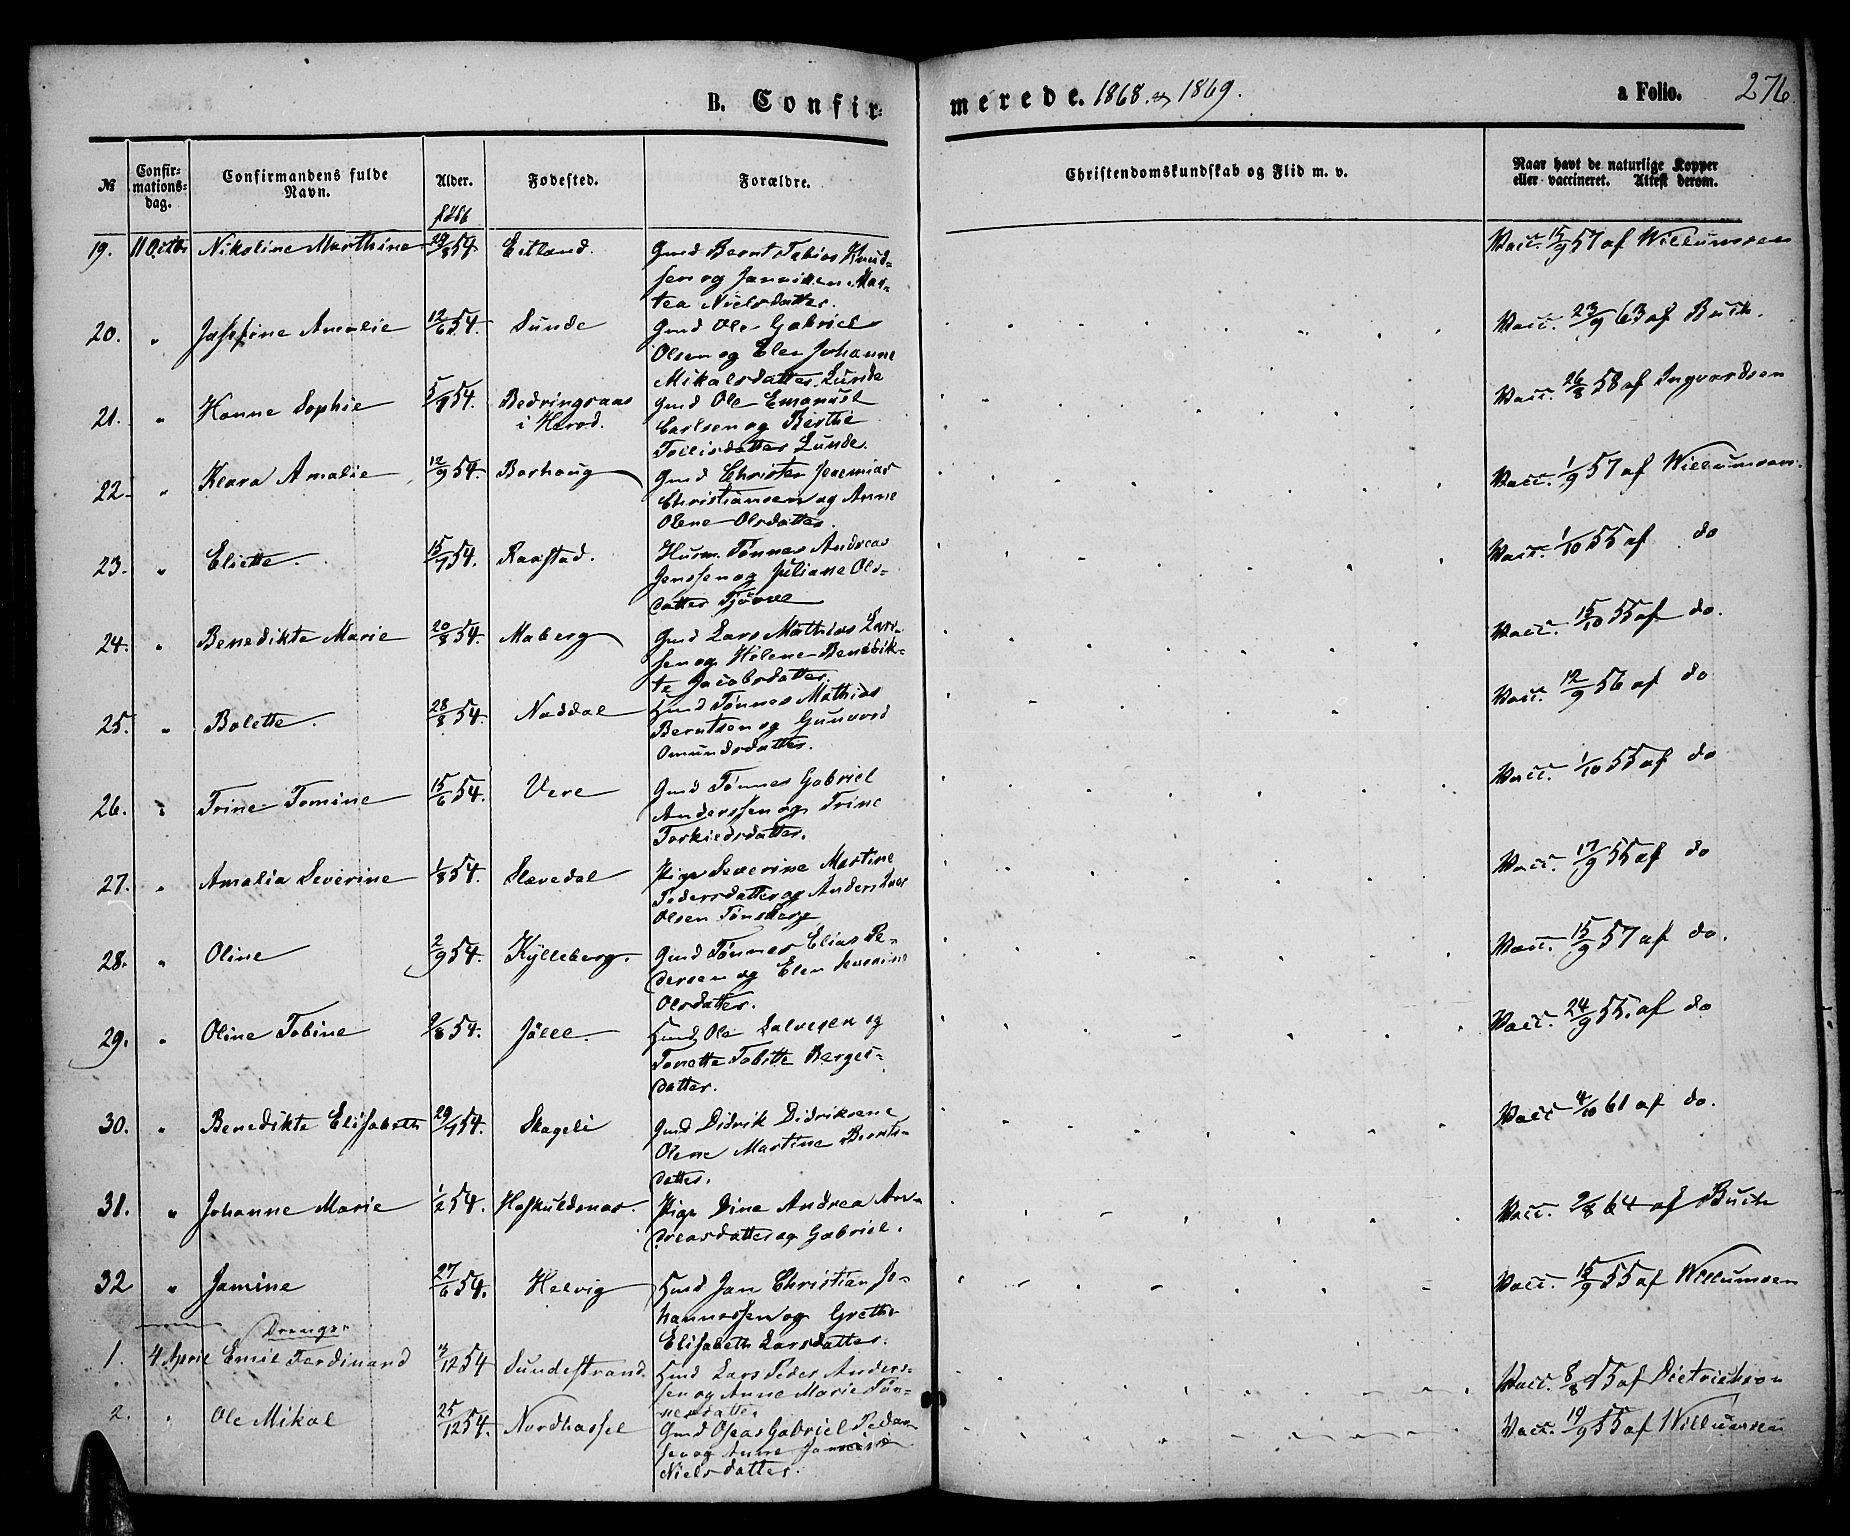 B. Confirmerede. 1868 & 1869. a Folio. 276.
№ Confirmationsdag. Confirmandens fulde Navn. Alder. Fødested. Forældre. Christendomskundskab og Flid m. v. Naar havt de naturlige Kopper eller vaccineret. Attest derom.
født
19. 11 Octbr Nikoline Marthine 29/8 54. Eitland. Gmd Bernt Tobias Knud- Vacc. 15/9 57 af Willumsen
sen og Janniken Mar-
tea Nielsdatter.
20. " Josefine Amalie 12/6 54. Lunde Gmd Ole Gabriel Vacc. 23/9 63 af Buch.
Olsen og Elen Johanne
Mikalsdatter Lunde
21. " Hanne Sophie 5/9 54. Bedringsaas Gmd Ole Emanuel Vacc. 26/8 58 af Ingvardsen
i Herred. Carlsen og Berthe
Tollisdatter Lunde.
22. " Klara Amalie 12/9 54. Borhaug Gmd Christen Jeremias Vacc. 1/9 57 af Willumsen.
Christiansen og Anne
Olene Olsdatter.
23. " Eliette. 15/9 54. Raastad. Husm. Tønnes Andreas Vacc. 1/10 55 af do
Jenssen og Juliane Ols-
datter Tjørve
24. " Benedikte Marie 20/8 54. Maberg Gmd Lars Mathias Lars- Vacc. 15/10 55 af do.
sen og Helene Benedik-
te Jacobsdatter.
25. " Bolette. 28/8 54. Naddal Hmd Tønnes Mathias Vacc. 12/9 56 af do
Berntsen og Gunvord
Omundsdatter.
26. " Trine Tomine 15/6 54. Vere Gmd Tønnes Gabriel Vacc. 1/10 55 af do
Anderssen og Trine
Torkieldsdatter.
27. " Amalia Severine 1/8 54. Slevedal Pige Severine Martine Vacc. 17/9 55 af do
Pedersdatter og Anders
Olsen Tønsberg
28. " Oline 2/9 54. Kylleberg. Gmd Tønnes Elias Pe- Vacc. 15/9 57 af do.
dersen og Elen Severine
Olsdatter.
29. " Oline Tobine 9/8 54. Jølle. Hmd Ole Salvesen og Vacc. 24/9 55. af do
Tonette Tobitte Berges-
datter.
30. " Benedikte Elisabeth 29/9 54. Skageli Gmd Didrik Didriksen Vacc 4/10 61 af do.
Olene Martine Bernts-
datter.
31. " Johanne Marie 1/2 54. Høskuldsnas. Pige Dine Andrea An- Vacc. 9/8 64 af Buch
dreasdatter og Gabriel.
32 " Jamine 27/6 54. Helvig Hmd Jan Christian Jo- Vacc. 15/9 55 af Willumsen
hannessen og Grethe
Elisabeth Larsdatter.
Drenge.
1. 4 April Emil Ferdinand 12 54 Lundestrand. Hmd Lars Peder Anders- Vacc. 8/8 55 af Dietrichson
sen og Anne Marie Tøn-
nesdatter
2. " Ole Mikal 25/12 54. Nordhassel Gmd Oseas Gabriel Peder- Vacc. 19/9 55 af Willumsen
sen og Anne
Nielsdatter.